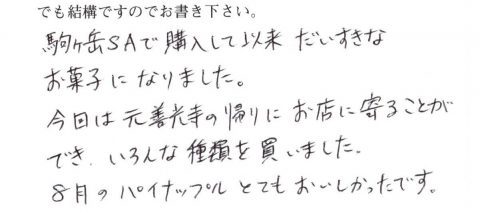 でも結構ですのでお書き下さい。
駒ヶ岳SAで購入して以来 だいすきな
お菓子に なりました。
今回は 元善光寺の帰りに お店に 寄ることが
でき、いろんな 種類を 買いました。
8月の パイナップル とても おいしかったです。